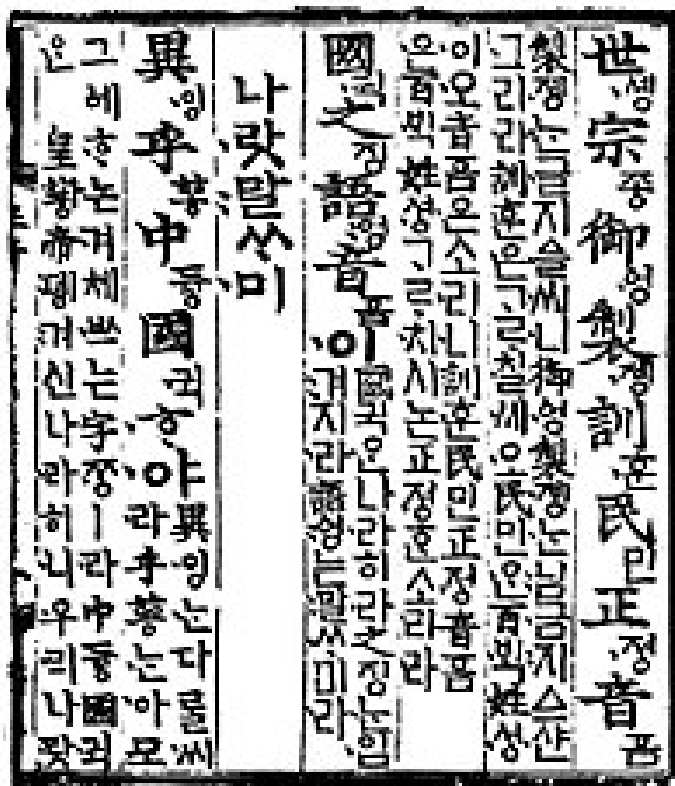 世솅宗조ᇰ御ᅌᅥᆼ製졩訓훈民민正져ᇰ音ᅙᅳᆷ
製졩는글지ᅀᅳᆯ씨니御ᅌᅥᆼ製졩는님금지ᅀᅳ샨
그리라訓훈은ᄀᆞᄅᆞ칠씨오民민ᄋᆞᆫ百ᄇᆡᆨ姓셔ᇰ
이오音ᅙᅳᆷ은소리니訓훈民민正져ᇰ音ᅙᅳᆷ
은百ᄇᆡᆨ姓셔ᇰᄀᆞᄅᆞ치시논正져ᇰᄒᆞᆫ소리라
國귁之징語ᅌᅥᆼ音ᅙᅳᆷ이
國귁ᄋᆞᆫ나라히라之징ᄂᆞᆫ입
겨지라語ᅌᅥᆼ는말ᄊᆞ미라
나랏말ᄊᆞ미
異잉乎ᅘᅩᆼ中듀ᇰ國귁ᄒᆞ야
異잉는다ᄅᆞᆯ씨
라乎ᅘᅩᆼ는아모
그ᅌᅦᄒᆞ논겨체ᄡᅳ는字ᄍᆞᆼㅣ라中듀ᇰ國귁
ᄋᆞᆫ皇ᅘᅪᇰ帝뎽겨신나라히니우리나랏